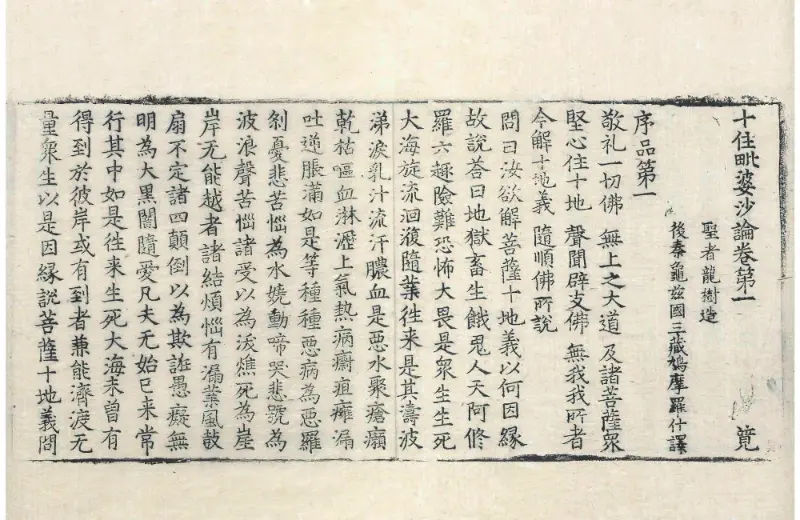 十住毗婆沙論卷第一 竟
聖者龍樹造
後秦龜兹國三藏鳩摩羅什譯
序品第一
敬礼一切佛 無上之大道 及諸菩薩衆
堅心住十地 聲聞辟支佛 無我我所者
今解十地義 隨順佛所說
問曰汝欲解菩薩十地義以何因縁
故說荅曰地獄畜生餓鬼人天阿脩
羅六趣險難恐怖大畏是衆生生死
大海旋流洄澓隨業徃来是其濤波
涕淚乳汁流汗膿血是惡水聚瘡癩
乾枯嘔血淋瀝上氣熱病瘺疽癰漏
吐逆脹滿如是等種種惡病為惡羅
剎憂悲苦惱為水嬈動啼哭悲號為
波浪聲苦惱諸受以為沃燋死為崖
岸无能越者諸結煩惱有漏業風鼓
扇不定諸四顛倒以為欺誑愚癡無
明為大黒闇隨愛凡夫无始已来常
行其中如是徃来生死大海未曾有
得到於彼岸或有到者兼能濟渡无
量衆生以是因縁說菩薩十地義問